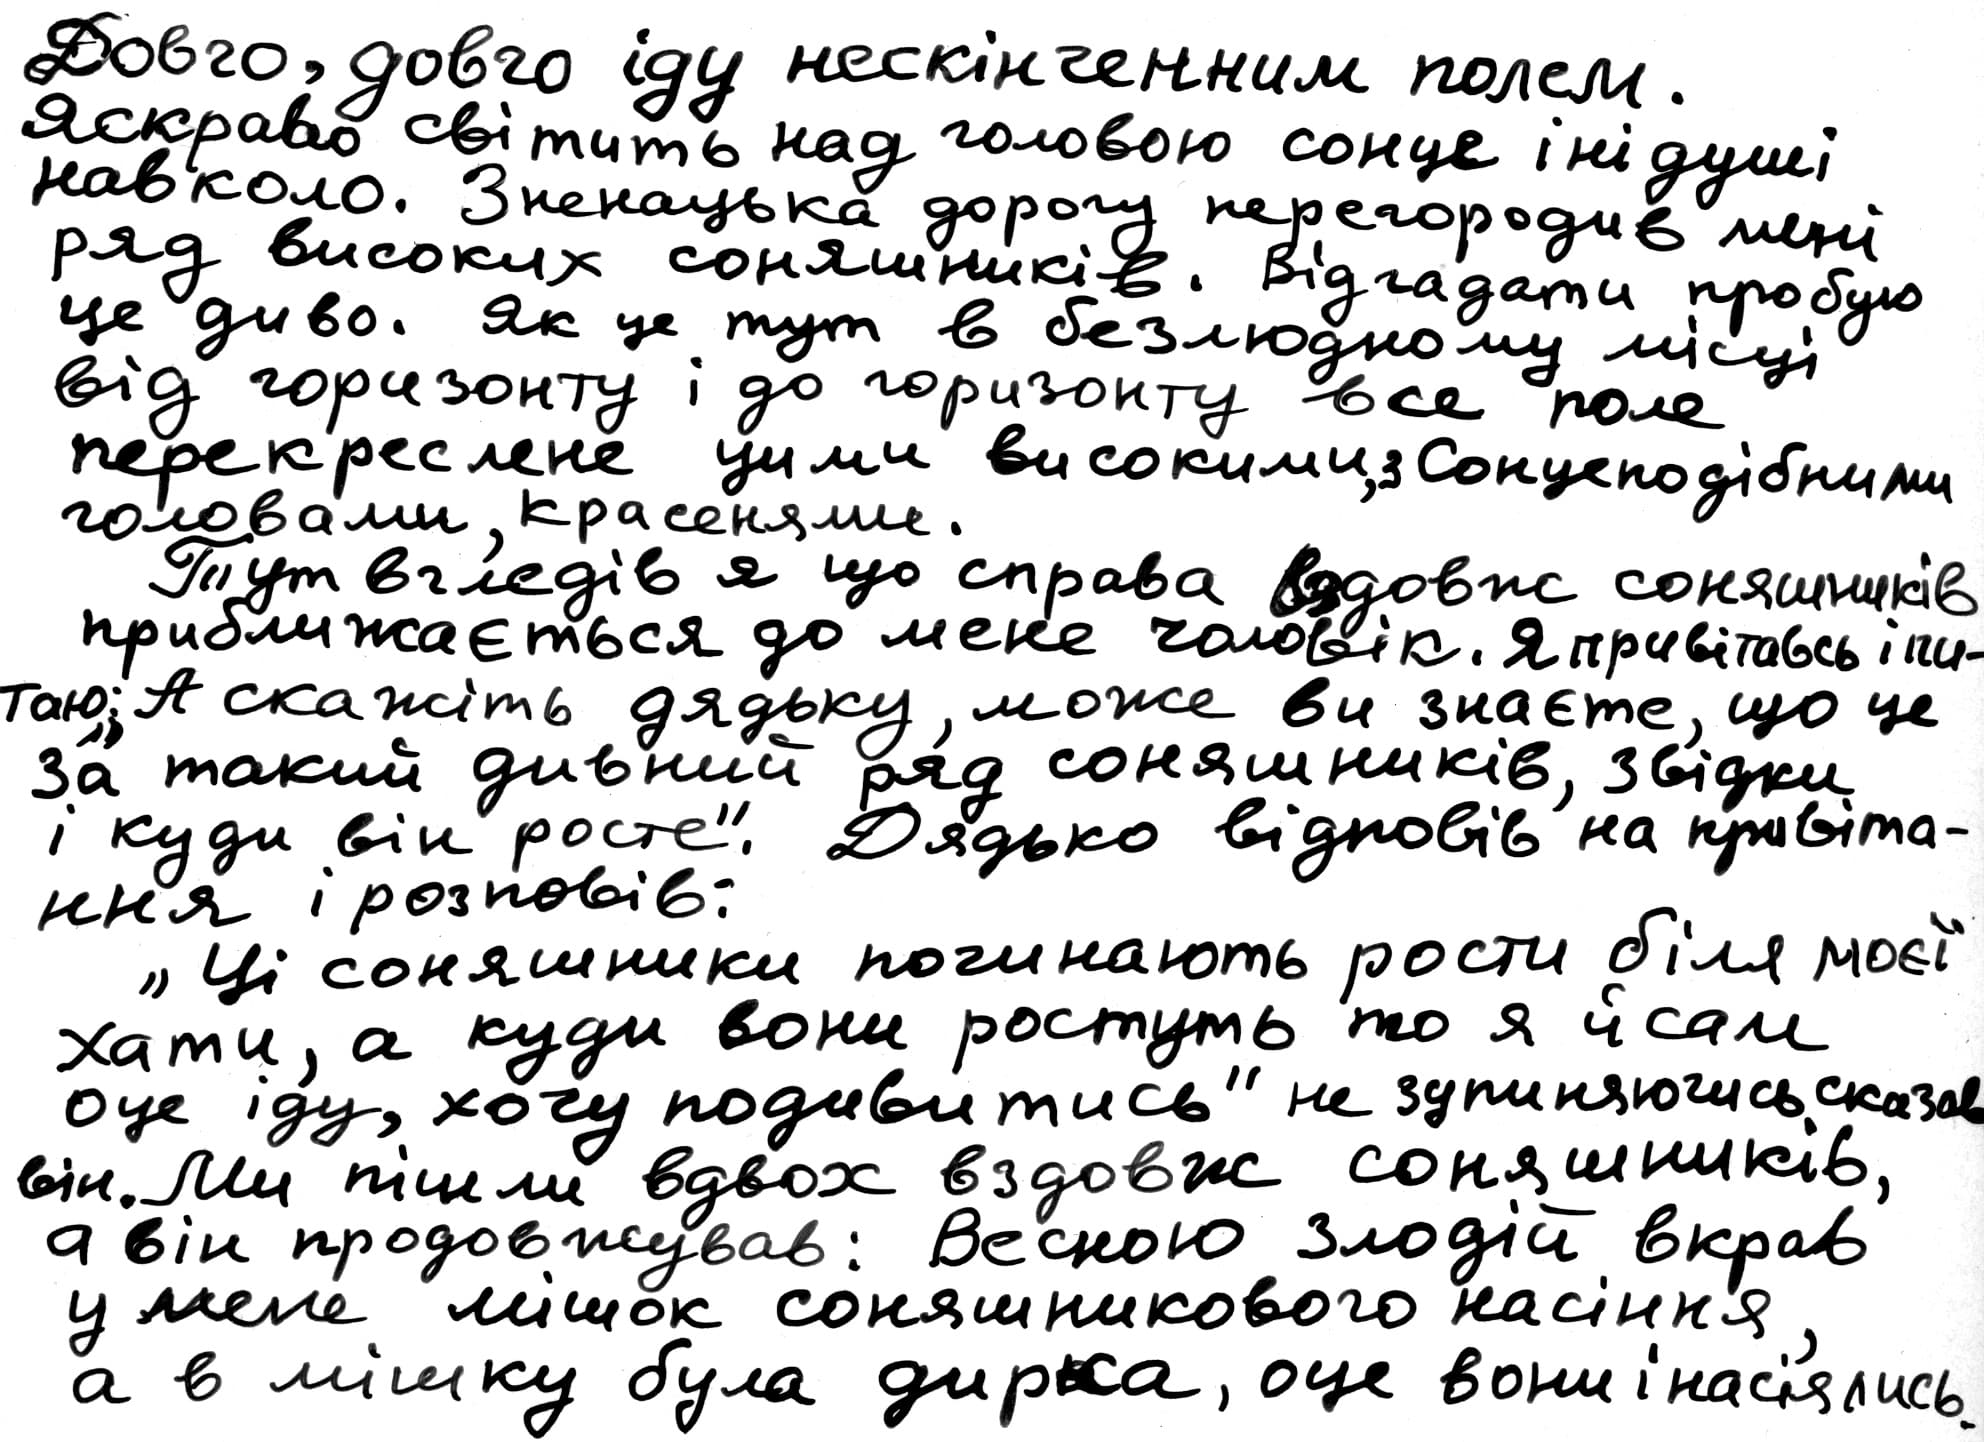 Довго, довго іду нескінченним полем.
Яскраво світить над головою сонце і ні душі
навколо. Зненацька дорогу перегородив мені
ряд високих соняшників. Відгадати пробую
це диво. Як це тут в безлюдному місці
від горизонту і до горизонту все поле
перекреслене цими високими, з Сонцеподібними
головами, красенями.
Тут вгледів я що справа вздовж соняшників
приближається до мене чоловік. Я привітавсь і пи-
таю: „А скажіть дядьку, може ви знаєте, що це
за такий дивний ряд соняшників, звідки
і куди він росте". Дядько відповів на привіта-
ння і розповів:
„Ці соняшники починають рости біля моєї
хати, а куди вони ростуть то я й сам
оце іду, хочу подивитись" не зупиняючись сказав
він. Ми пішли вдвох вздовж соняшників,
а він продовжував: Весною злодій вкрав
у мене мішок соняшникового насіння,
а в мішку була дирка, оце вони і насіялись.